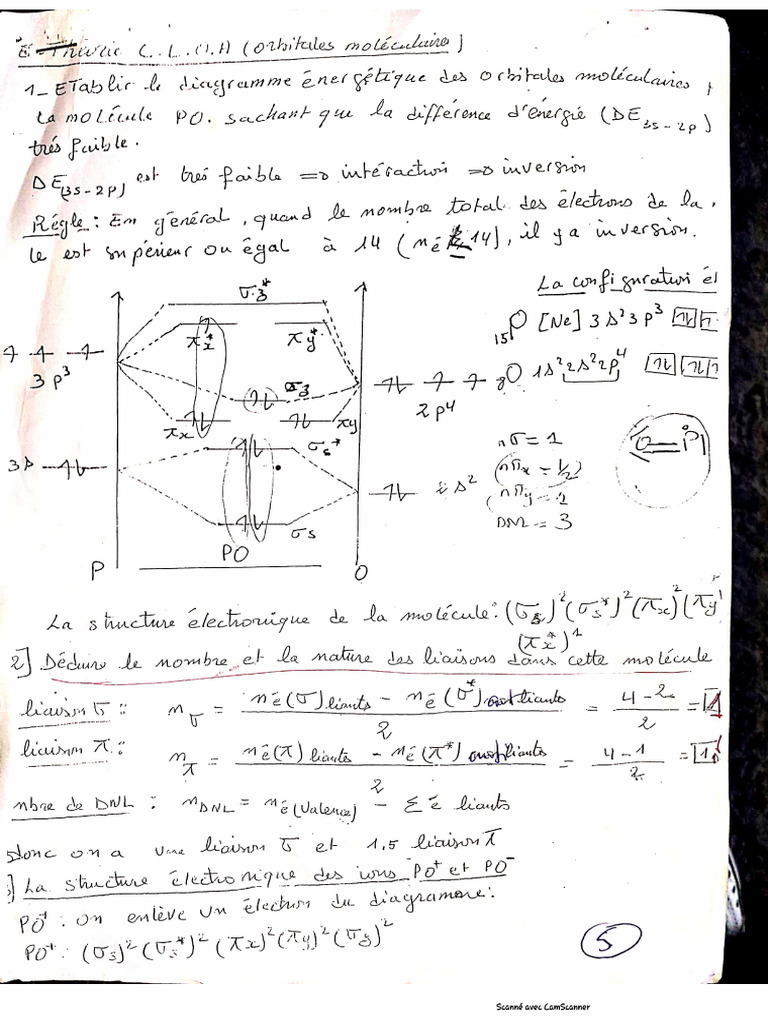 E-Théorie C.L.O.A (Orbitales moléculaires)
1- ETablir le diagramme énergétique des orbitales moléculaires
la molécule PO. sachant que la différence d'énergie (DE3s-2p)
très faible.
DE(3s-2p) est très faible => intéraction => inversion
Régle : En général, quand le nombre total des électrons de la
le est supérieur ou égal à 14 (né 14), il y a inversion.
La configuration él
σz*
15P [Ne] 3s²3p³
πx* πy*
3p³
σz
2p⁴
8O 1s²2s²2p⁴
πx πy
σs*
nσ = 1
nπx = 1/2
nπy = 1
DNL = 3
3s
s²
σs
PO
P O
La structure électronique de la molécule: (σs)²(σs*)²(πx)²(πy
(πx*)¹
2] Déduire le nombre et la nature des liaisons dans cette molécule
liaison σ : nσ = né(σ) liants - né(σ*) antiliants / 2 = 4-2 / 2 = 1
liaison π : nπ = né(π) liants - né(π*) antiliants / 2 = 4-1 / 2 = 1,
nbre de DNL : nDNL = né(Valence) - Σ é liants
donc on a une liaison σ et 1.5 liaison π
] La structure électronique des ions PO⁺ et PO⁻
PO⁺ : On enlève un électron du diagramme:
PO⁺ : (σs)²(σs*)²(πx)²(πy)²(σz)²
5
Scanné avec CamScanner